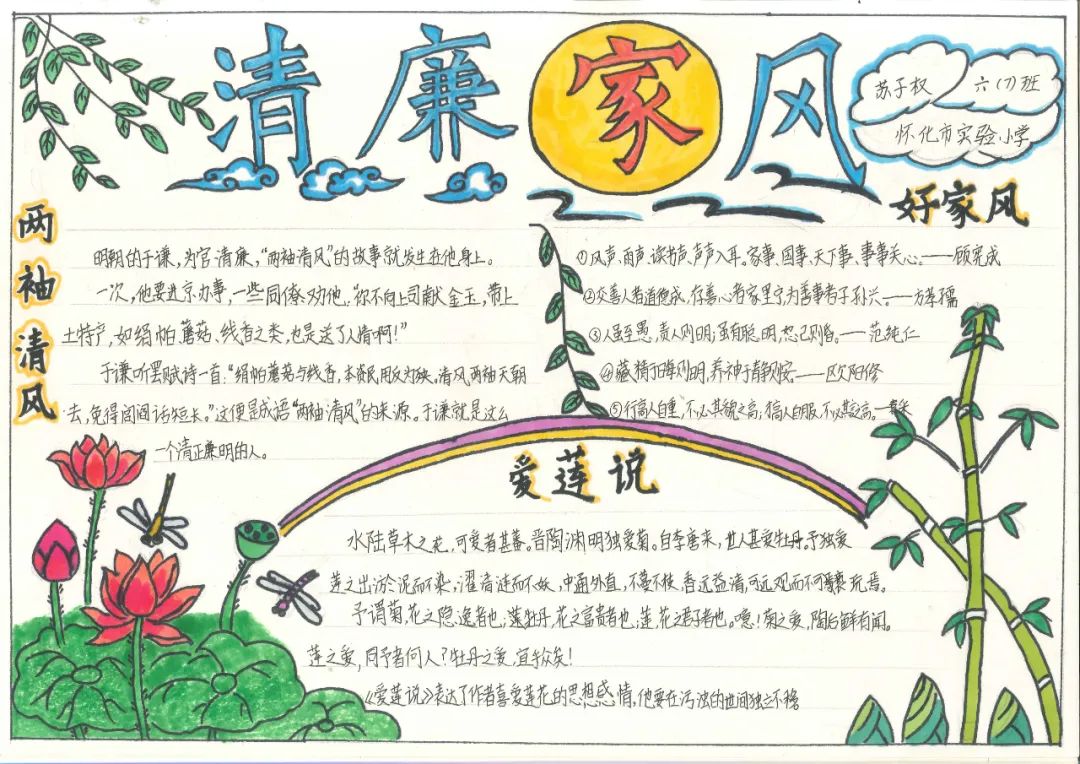 清廉家风
苏子权 六(7)班
怀化市实验小学
两袖清风
明朝的于谦，为官清廉，“两袖清风”的故事就发生在他身上。
一次，他要进京办事，一些同僚劝他，“你不向上司献金玉，带上
土特产，如绢帕、蘑菇、线香之类，也是送了人情啊！”
于谦听罢赋诗一首：“绢帕蘑菇与线香，本资民用反为殃，清风两袖天朝
去，免得闾阎话短长。”这便是成语“两袖清风”的来源。于谦就是这么
一个清正廉明的人。
好家风
①风声、雨声、读书声、声声入耳。家事、国事、天下事、事事关心。——顾宪成
②交善人者道德成，存善心者家里宁，为善事者子孙兴。——方孝孺
③人虽至愚，责人则明，虽有聪明，恕己则昏。——范纯仁
④藏精于晦则明，养神于静则安。——欧阳修
⑤行高人自重，不必其貌之高，才高人自服，不必其言之高。
爱莲说
水陆草木之花，可爱者甚蕃。晋陶渊明独爱菊。自李唐来，世人甚爱牡丹。予独爱
莲之出淤泥而不染，濯清涟而不妖，中通外直，不蔓不枝，香远益清，可远观而不可亵玩焉。
予谓菊，花之隐逸者也；牡丹，花之富贵者也；莲，花之君子者也。噫！菊之爱，陶后鲜有闻。
莲之爱，同予者何人？牡丹之爱，宜乎众矣！
《爱莲说》表达了作者喜爱莲花的思想感情，他要在污浊的世间独立不移